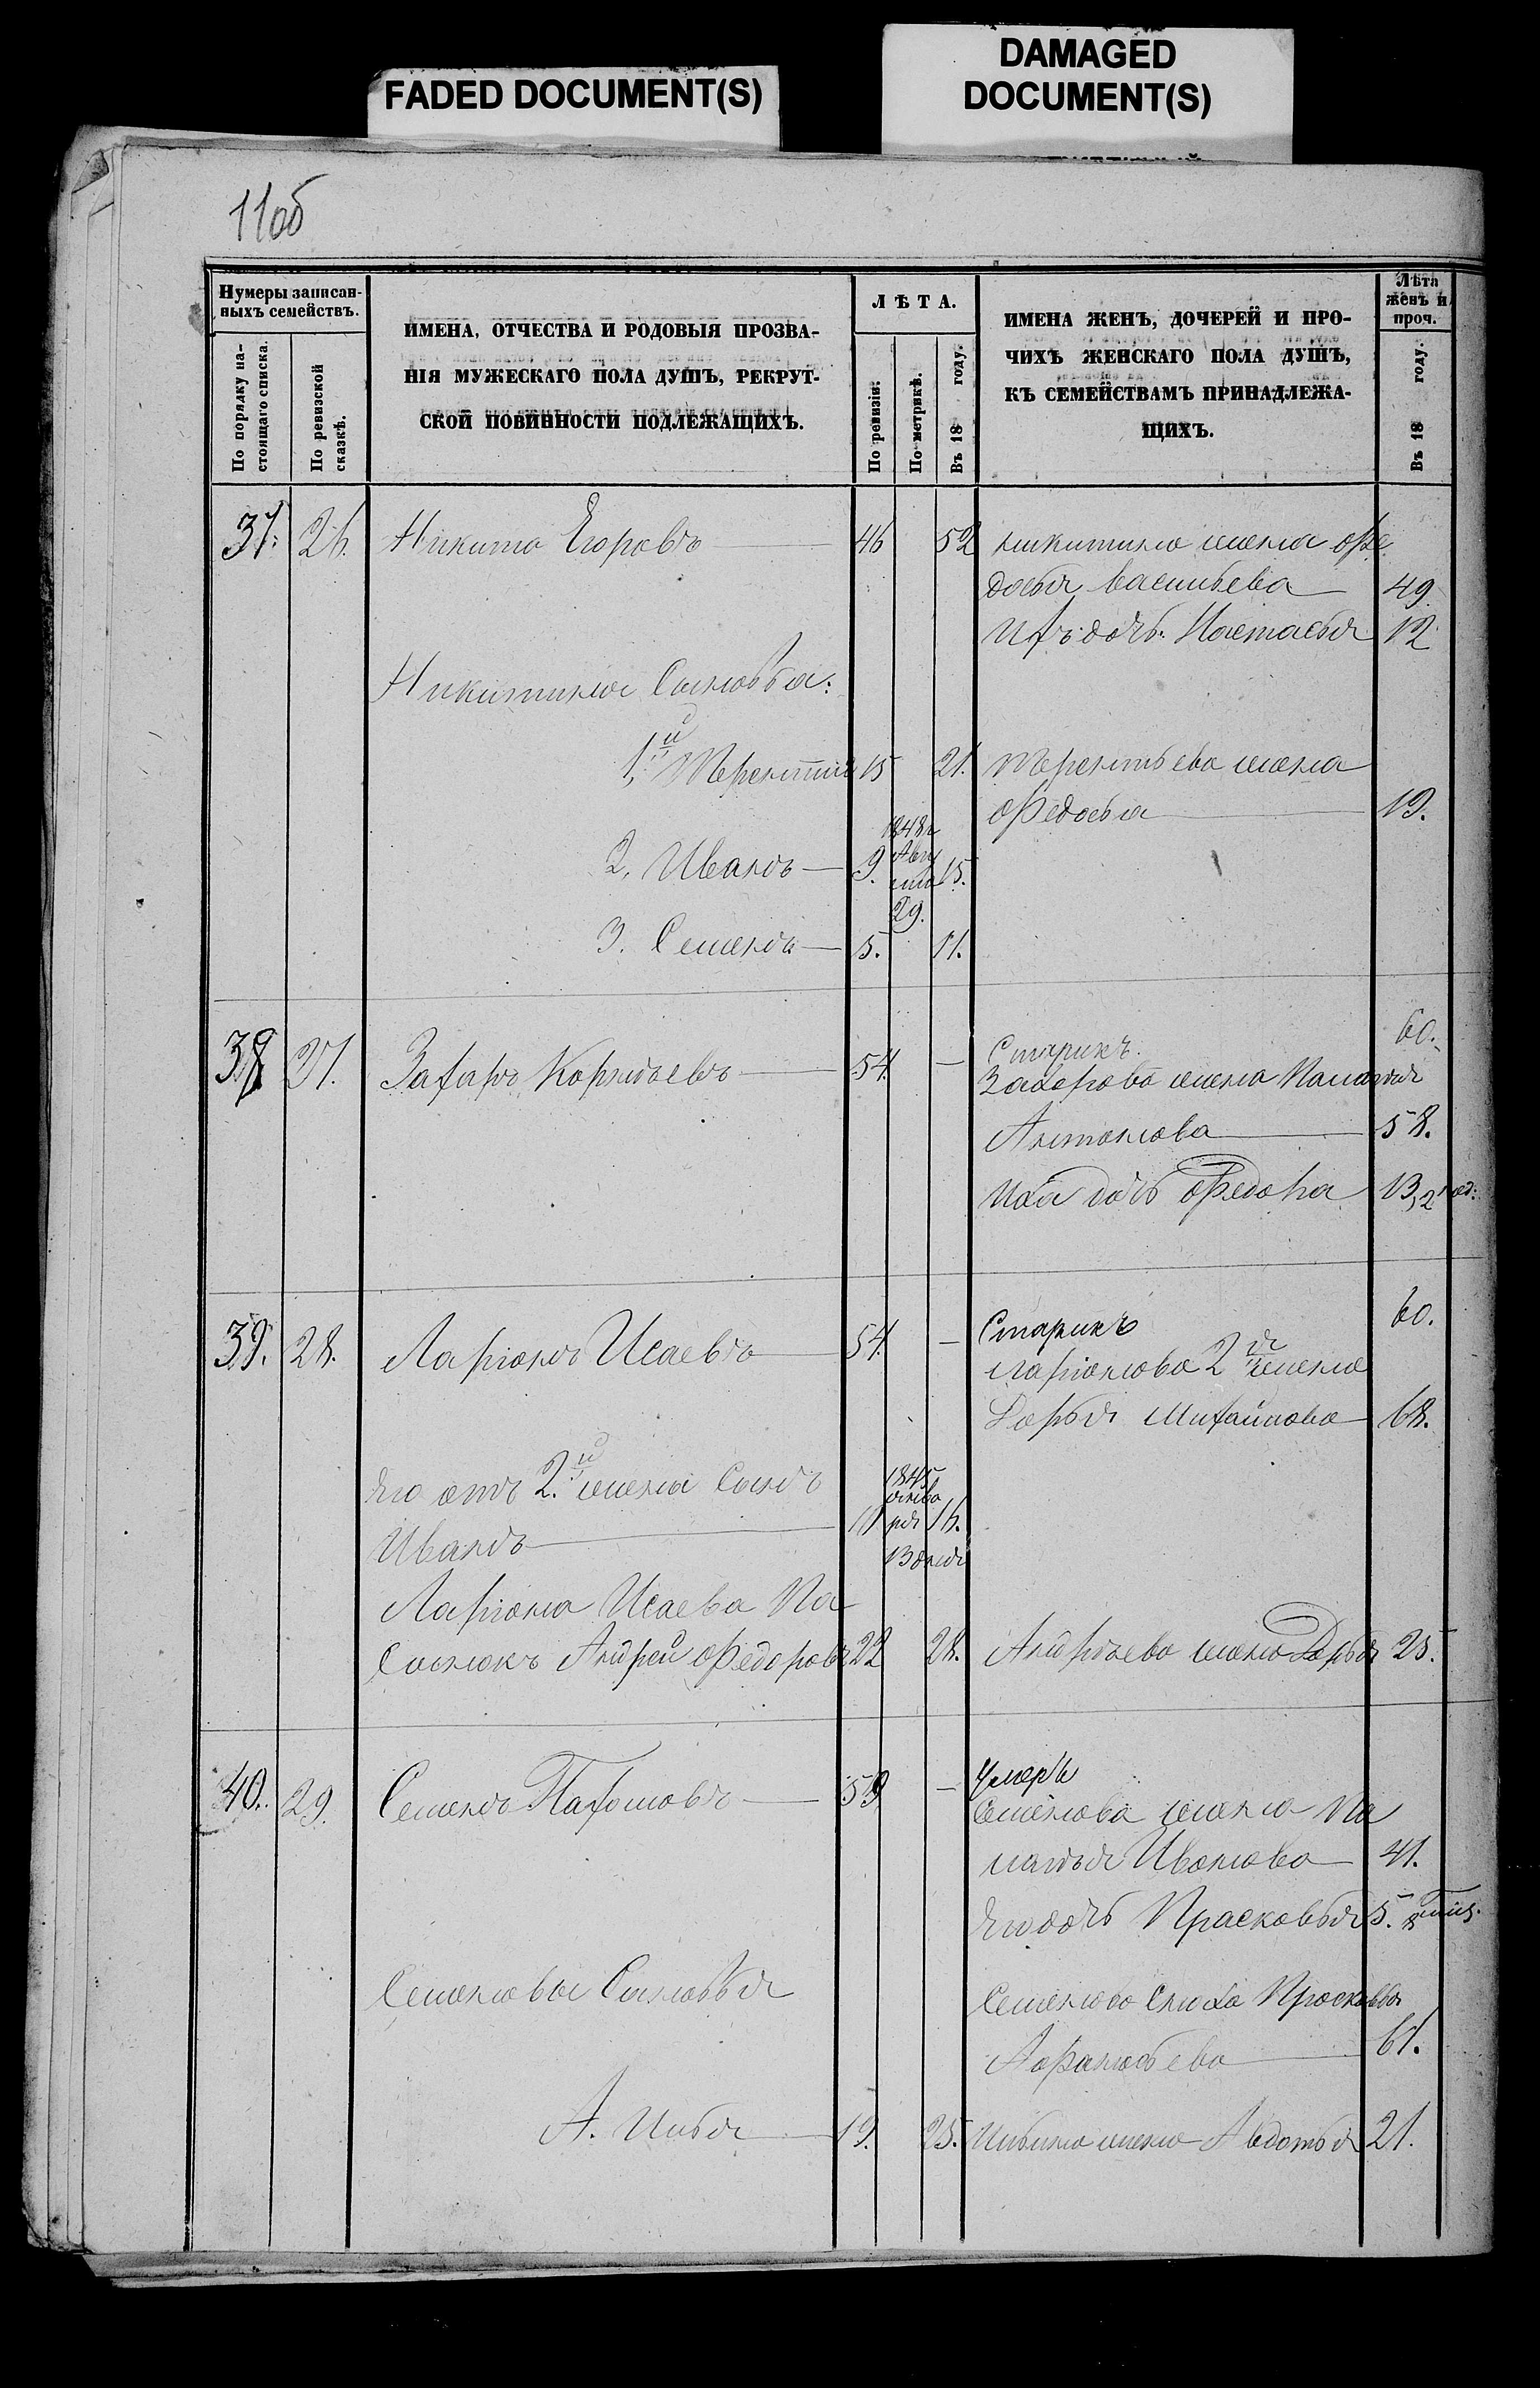 FADED DOCUMENT(S)
DAMAGED
DOCUMENT(S)
11об
Нумеры записан-
ныхъ семействъ.
По порядку на-
стоящаго списка.
По ревизской
сказкѣ.
ИМЕНА, ОТЧЕСТВА И РОДОВЫЯ ПРОЗВА-
НІЯ МУЖЕСКАГО ПОЛА ДУШЪ, РЕКРУТ-
СКОЙ ПОВИННОСТИ ПОДЛЕЖАЩИХЪ.
ЛѢТА.
По ревизіи.
По метрикѣ.
Въ 18 году.
ИМЕНА ЖЕНЪ, ДОЧЕРЕЙ И ПРО-
ЧИХЪ ЖЕНСКАГО ПОЛА ДУШЪ,
КЪ СЕМЕЙСТВАМЪ ПРИНАДЛЕЖА-
ЩИХЪ.
Лѣта
женъ и
проч.
Въ 18 году.
37. 26. Никита Егоровъ 46 52 никитина жена Фе
досья Васильева 49
Ихъ дочь Настасья 12
Никитины Сыновья:
1й Терентий 15 21. терентьева жена
Федосья 19.
2. Иванъ 9. 1848 Авгу
ста 29. 15.
3. Семенъ 5. 11.
38 27. Захаръ 54. — Старикъ. 60.
Захарова жена Палагея
Антонова 58.
Иха дочь 13
39. 28. Ларіонъ Исаевъ 54. — Старикъ 60.
Ларіонова 2я жена
Дарья Михайлова 68.
Его отъ 2й жены Сынъ
Иванъ 16.
Ларіона Исаева Па
Сынокъ Андрей Федоровъ 22 28. Андреева жена Дарья 25.
40. 29. Семенъ Пахомовъ 59 — Умеръ
Семенова жена Па
лагея Иванова 41.
Его дочь Прасковья 5.
Семеновы Сыновья
Семенова Сноха Прасковья
Афанасьева 61.
А. Илья 19. 25. Ильина жена Авдотья 21.